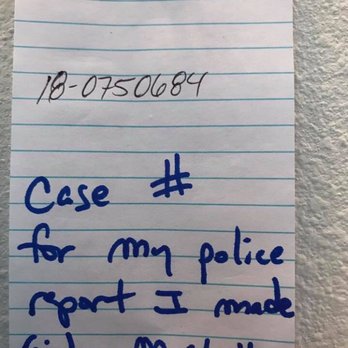 18-0750684
Case #
for my police
report I made